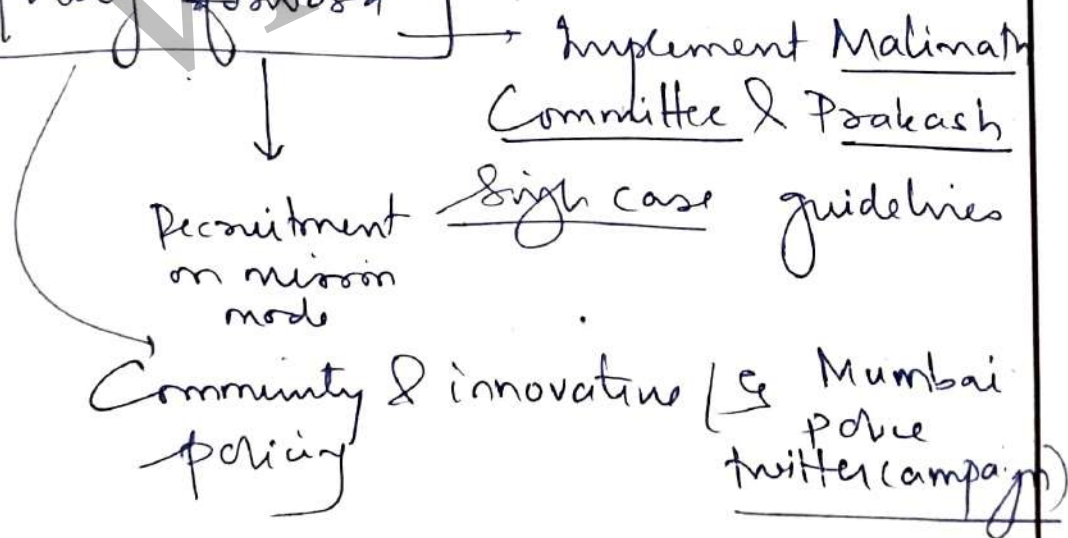 Implement Malimath
Committee & Prakash
Singh case guidelines
Recruitment
on mission
mode
Community & innovative (eg Mumbai
policing police
twitter campaign)